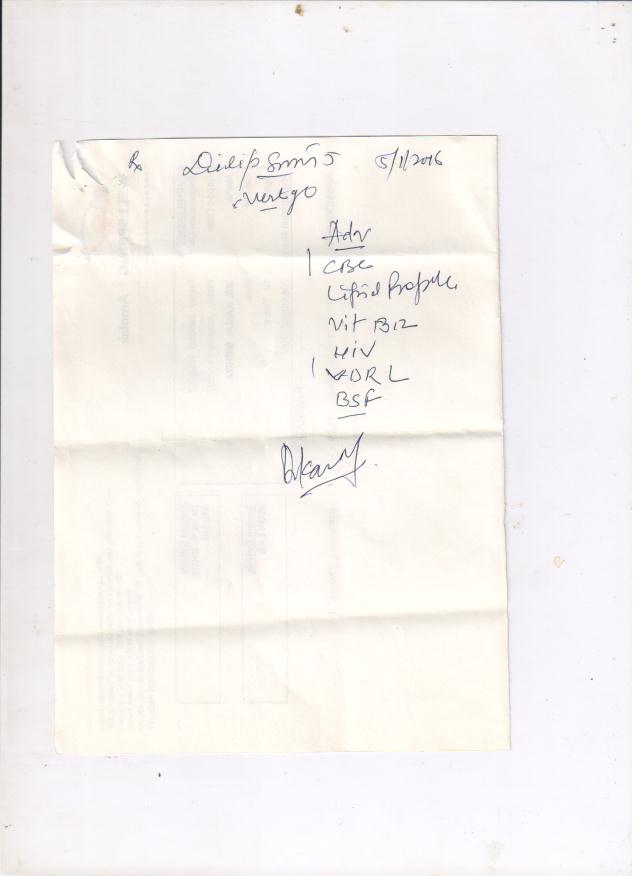 Rx Dilip 5/1/2016
Vertgo
Adv
CBC
Lipid Profile
Vit B12
HIV
VDRL
BSF